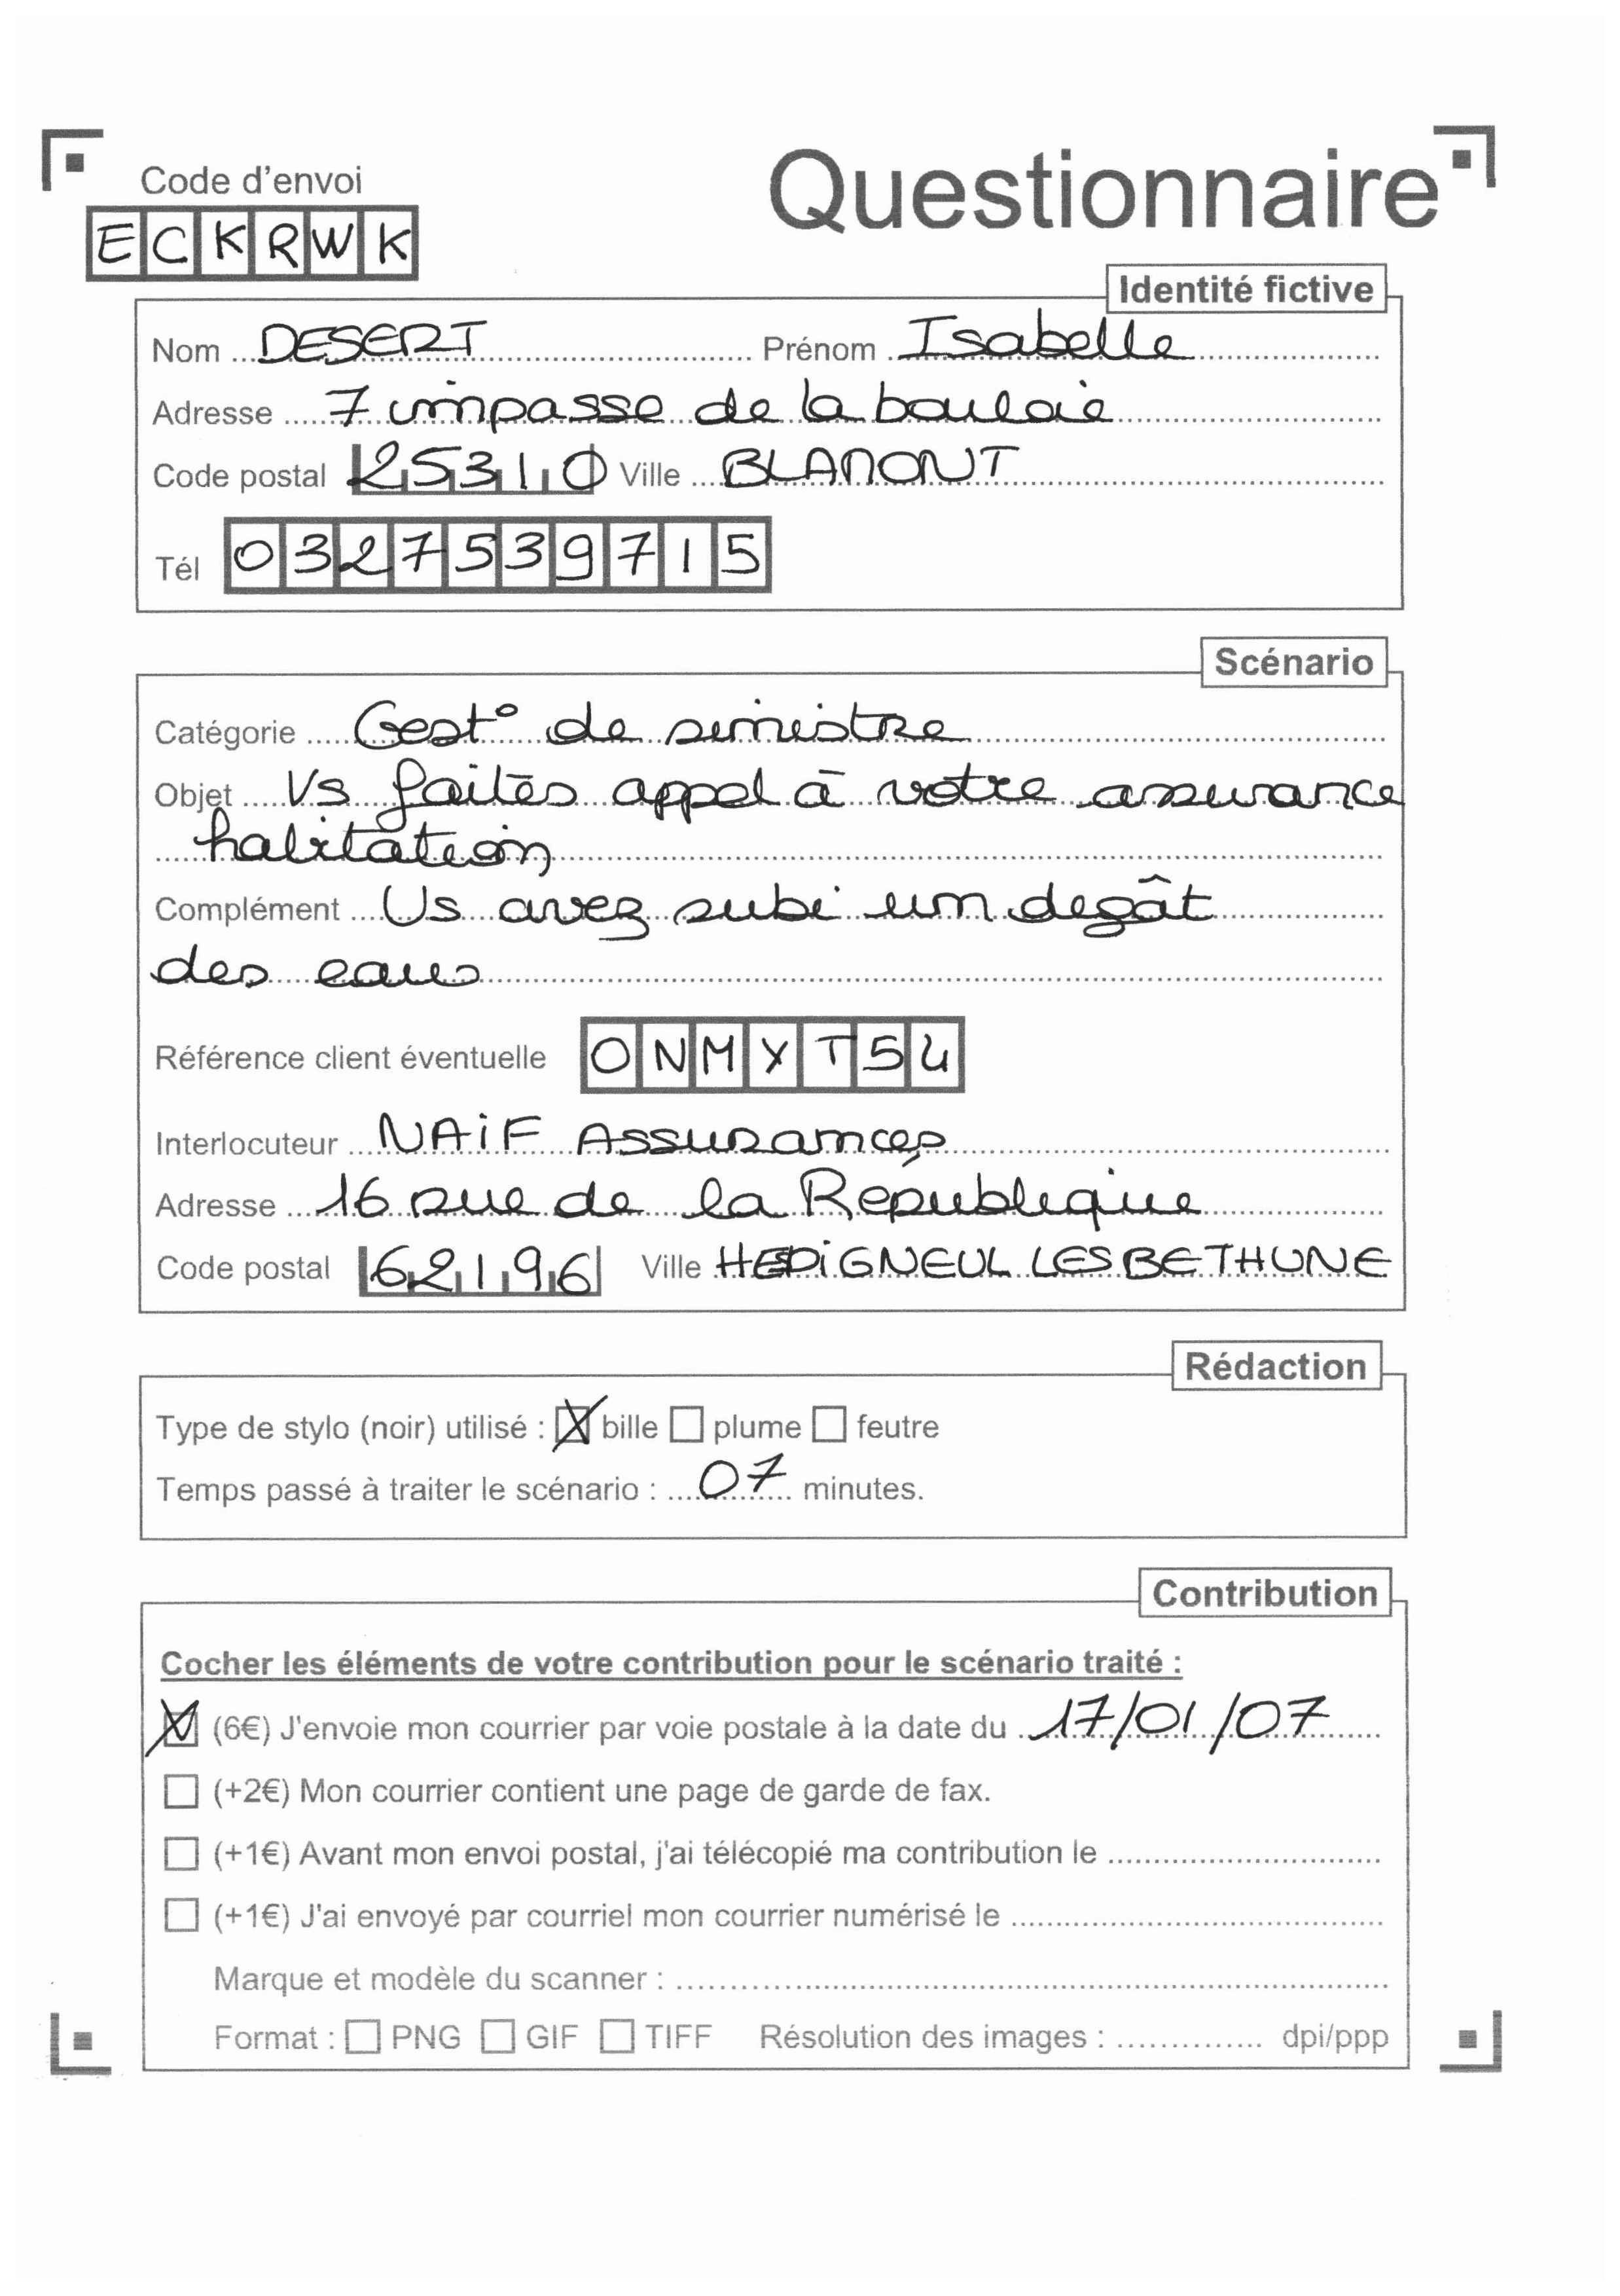 Code d'envoi
Questionnaire
ECKRWK
Identité fictive
Nom DESERT Prénom Isabelle
Adresse 7 impasse de la boulaie
Code postal 25310 Ville BLAMONT
Tél 0327539715
Scénario
Catégorie Gest° de sinistre
Objet Vs faites appel à votre assurance
habitation
Complément Vs avez subi un degât
des eaux
Référence client éventuelle ONMXT54
Interlocuteur NAiF Assurances
Adresse 16 rue de la République
Code postal 62196 Ville HEDiGNEUL LES BETHUNE
Rédaction
Type de stylo (noir) utilisé : ☒ bille ☐ plume ☐ feutre
Temps passé à traiter le scénario : 07 minutes.
Contribution
Cocher les éléments de votre contribution pour le scénario traité :
☒ (6€) J'envoie mon courrier par voie postale à la date du 17/01/07
☐ (+2€) Mon courrier contient une page de garde de fax.
☐ (+1€) Avant mon envoi postal, j'ai télécopié ma contribution le
☐ (+1€) J'ai envoyé par courriel mon courrier numérisé le
Marque et modèle du scanner :
Format : ☐ PNG ☐ GIF ☐ TIFF Résolution des images : dpi/ppp